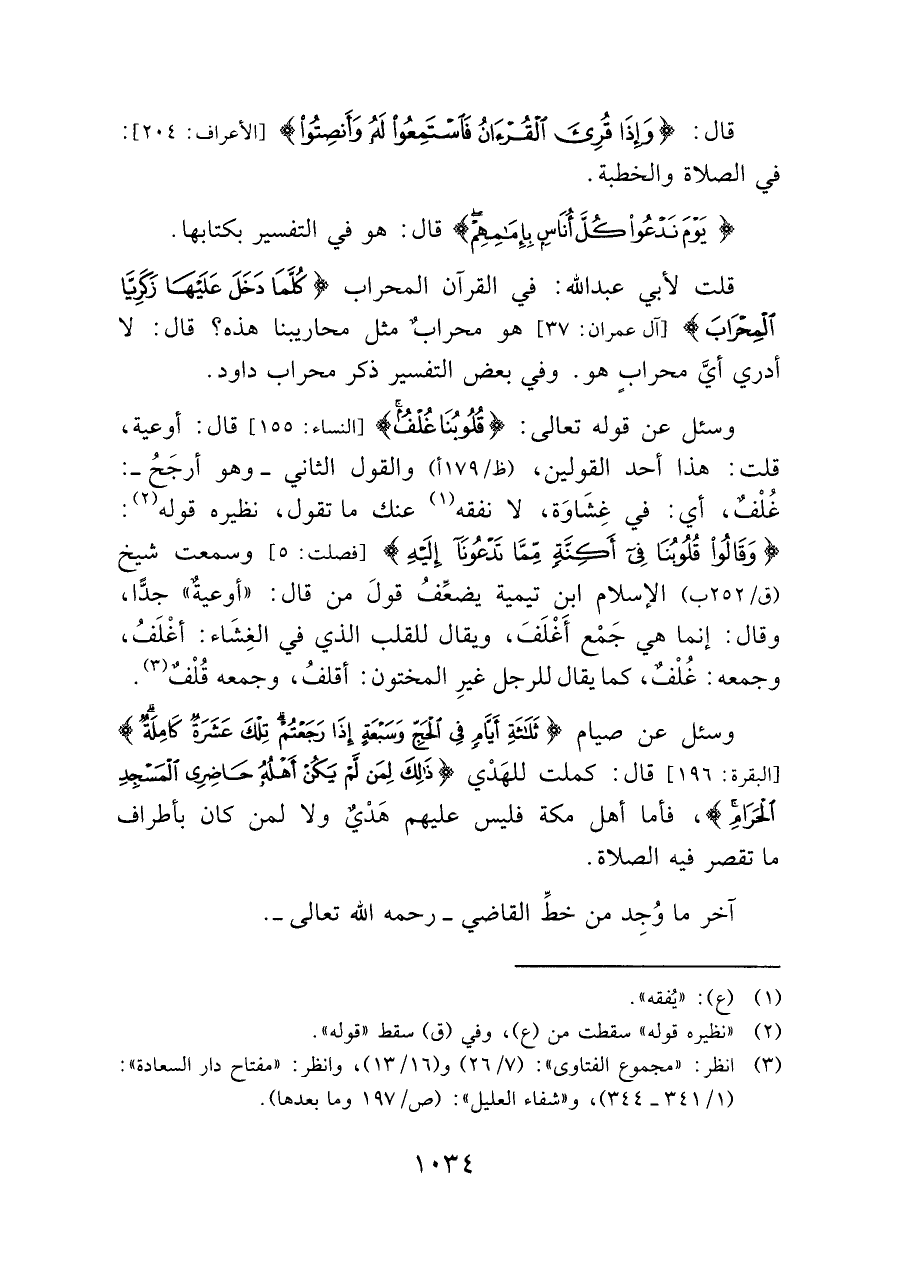 قال: ﴿وَإِذَا قُرِئَ ٱلْقُرْءَانُ فَٱسْتَمِعُوا۟ لَهُۥ وَأَنصِتُوا۟﴾ [الأعراف: ٢٠٤]:
في الصلاة والخطبة.
﴿يَوْمَ نَدْعُوا۟ كُلَّ أُنَاسٍۭ بِإِمَٰمِهِمْۖ﴾ قال: هو في التفسير بكتابها.
قلت لأبي عبدالله: في القرآن المحراب ﴿كُلَّمَا دَخَلَ عَلَيْهَا زَكَرِيَّا
ٱلْمِحْرَابَ﴾ [آل عمران: ٣٧] هو محرابٌ مثل محاريبنا هذه؟ قال: لا
أدري أيَّ محرابٍ هو. وفي بعض التفسير ذكر محراب داود.
وسئل عن قوله تعالى: ﴿قُلُوبُنَا غُلْفٌۢۚ﴾ [النساء: ١٥٥] قال: أوعية،
قلت: هذا أحد القولين، (ظ/١٧٩أ) والقول الثاني ـ وهو أرجَحُ ـ:
غُلْفٌ، أي: في غِشَاوَة، لا نفقه(١) عنك ما تقول، نظيره قوله(٢):
﴿وَقَالُوا۟ قُلُوبُنَا فِىٓ أَكِنَّةٍ مِّمَّا تَدْعُونَآ إِلَيْهِ﴾ [فصلت: ٥] وسمعت شيخ
(ق/٢٥٢ب) الإسلام ابن تيمية يضعِّفُ قولَ من قال: «أوعيةٌ» جدًّا،
وقال: إنما هي جَمْع أَغْلَفَ، ويقال للقلب الذي في الغِشَاء: أغْلَفُ،
وجمعه: غُلْفٌ، كما يقال للرجل غيرِ المختون: أقلفُ، وجمعه قُلْفٌ(٣).
وسئل عن صيام ﴿ثَلَٰثَةِ أَيَّامٍ فِى ٱلْحَجِّ وَسَبْعَةٍ إِذَا رَجَعْتُمْۗ تِلْكَ عَشَرَةٌ كَامِلَةٌۗ﴾
[البقرة: ١٩٦] قال: كملت للهَدْي ﴿ذَٰلِكَ لِمَن لَّمْ يَكُنْ أَهْلُهُۥ حَاضِرِى ٱلْمَسْجِدِ
ٱلْحَرَامِۚ﴾، فأما أهل مكة فليس عليهم هَدْيٌ ولا لمن كان بأطراف
ما تقصر فيه الصلاة.
آخر ما وُجِد من خطِّ القاضي ـ رحمه الله تعالى ـ.
(١) (ع): «يُفقه».
(٢) «نظيره قوله» سقطت من (ع)، وفي (ق) سقط «قوله».
(٣) انظر: «مجموع الفتاوى»: (٢٦/٧) و(١٣/١٦)، وانظر: «مفتاح دار السعادة»:
(١/ ٣٤١ ـ ٣٤٤)، و«شفاء العليل»: (ص/ ١٩٧ وما بعدها).
١٠٣٤